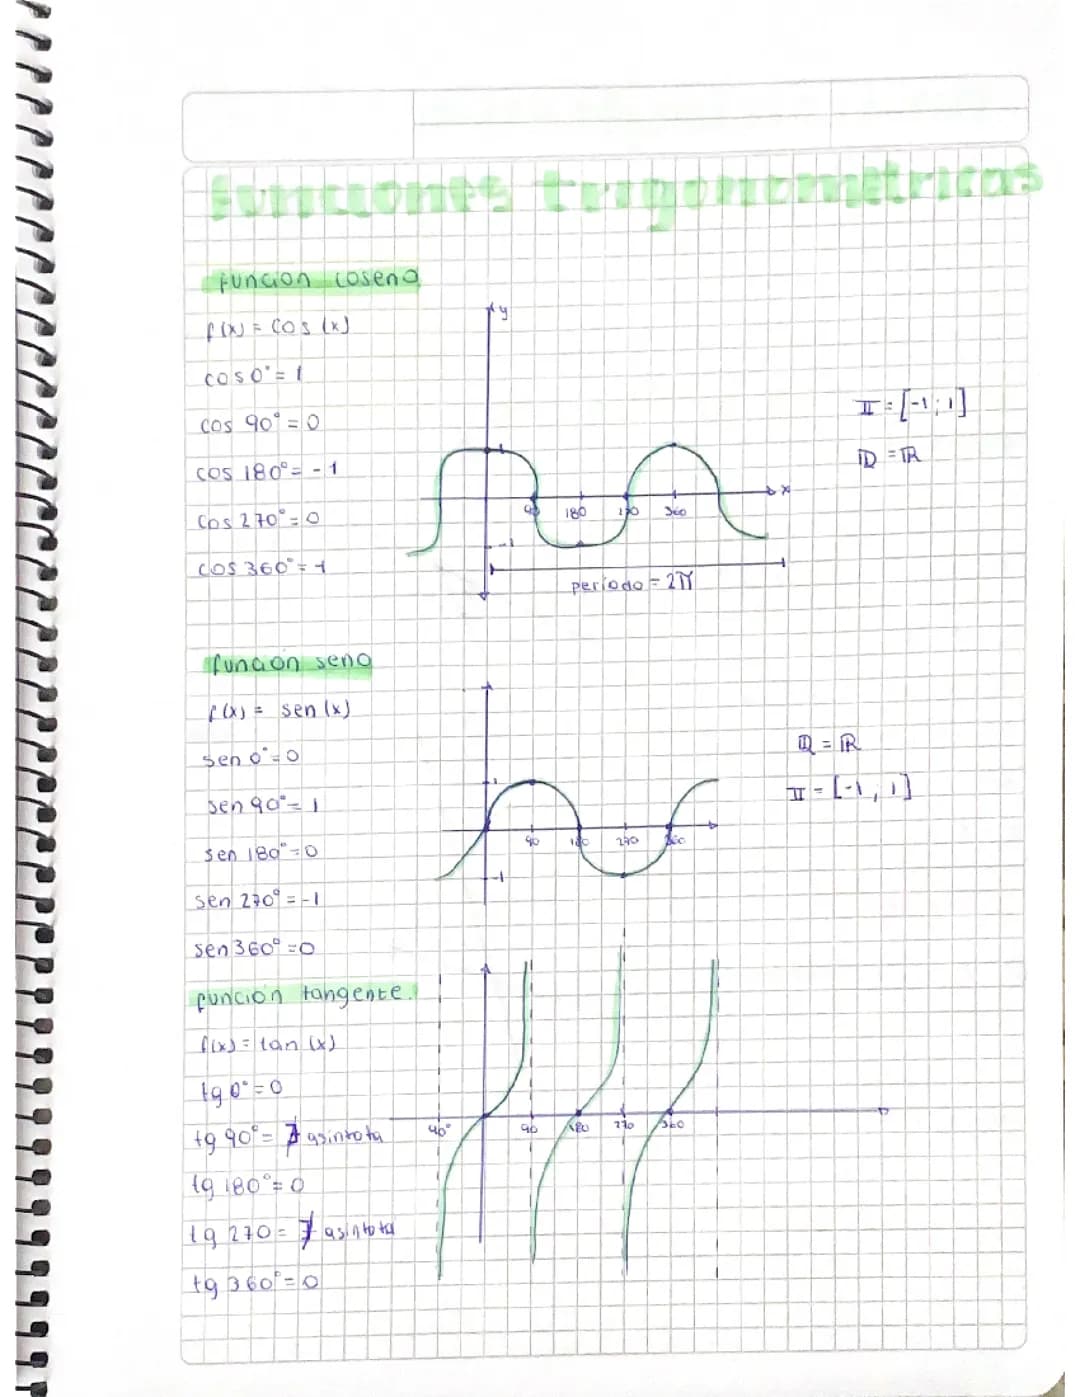 funciones trigonométricas
funcion coseno
f(x) = cos (x)
cos 0° = 1
cos 90° = 0
cos 180° = -1
cos 270° = 0
cos 360° = 1
y
1
90 180 270 360 x
-1
periodo = 2π
II = [-1; 1]
ID = IR
función seno
f(x) = sen (x)
sen 0° = 0
sen 90° = 1
sen 180° = 0
sen 270° = -1
sen 360° = 0
1
90 180 270 360
-1
ID = IR
II = [-1, 1]
función tangente.
f(x) = tan (x)
tg 0° = 0
tg 90° = ∄ asintota
tg 180° = 0
tg 270 = ∄ asintota
tg 360° = 0
90° 90 180 270 360